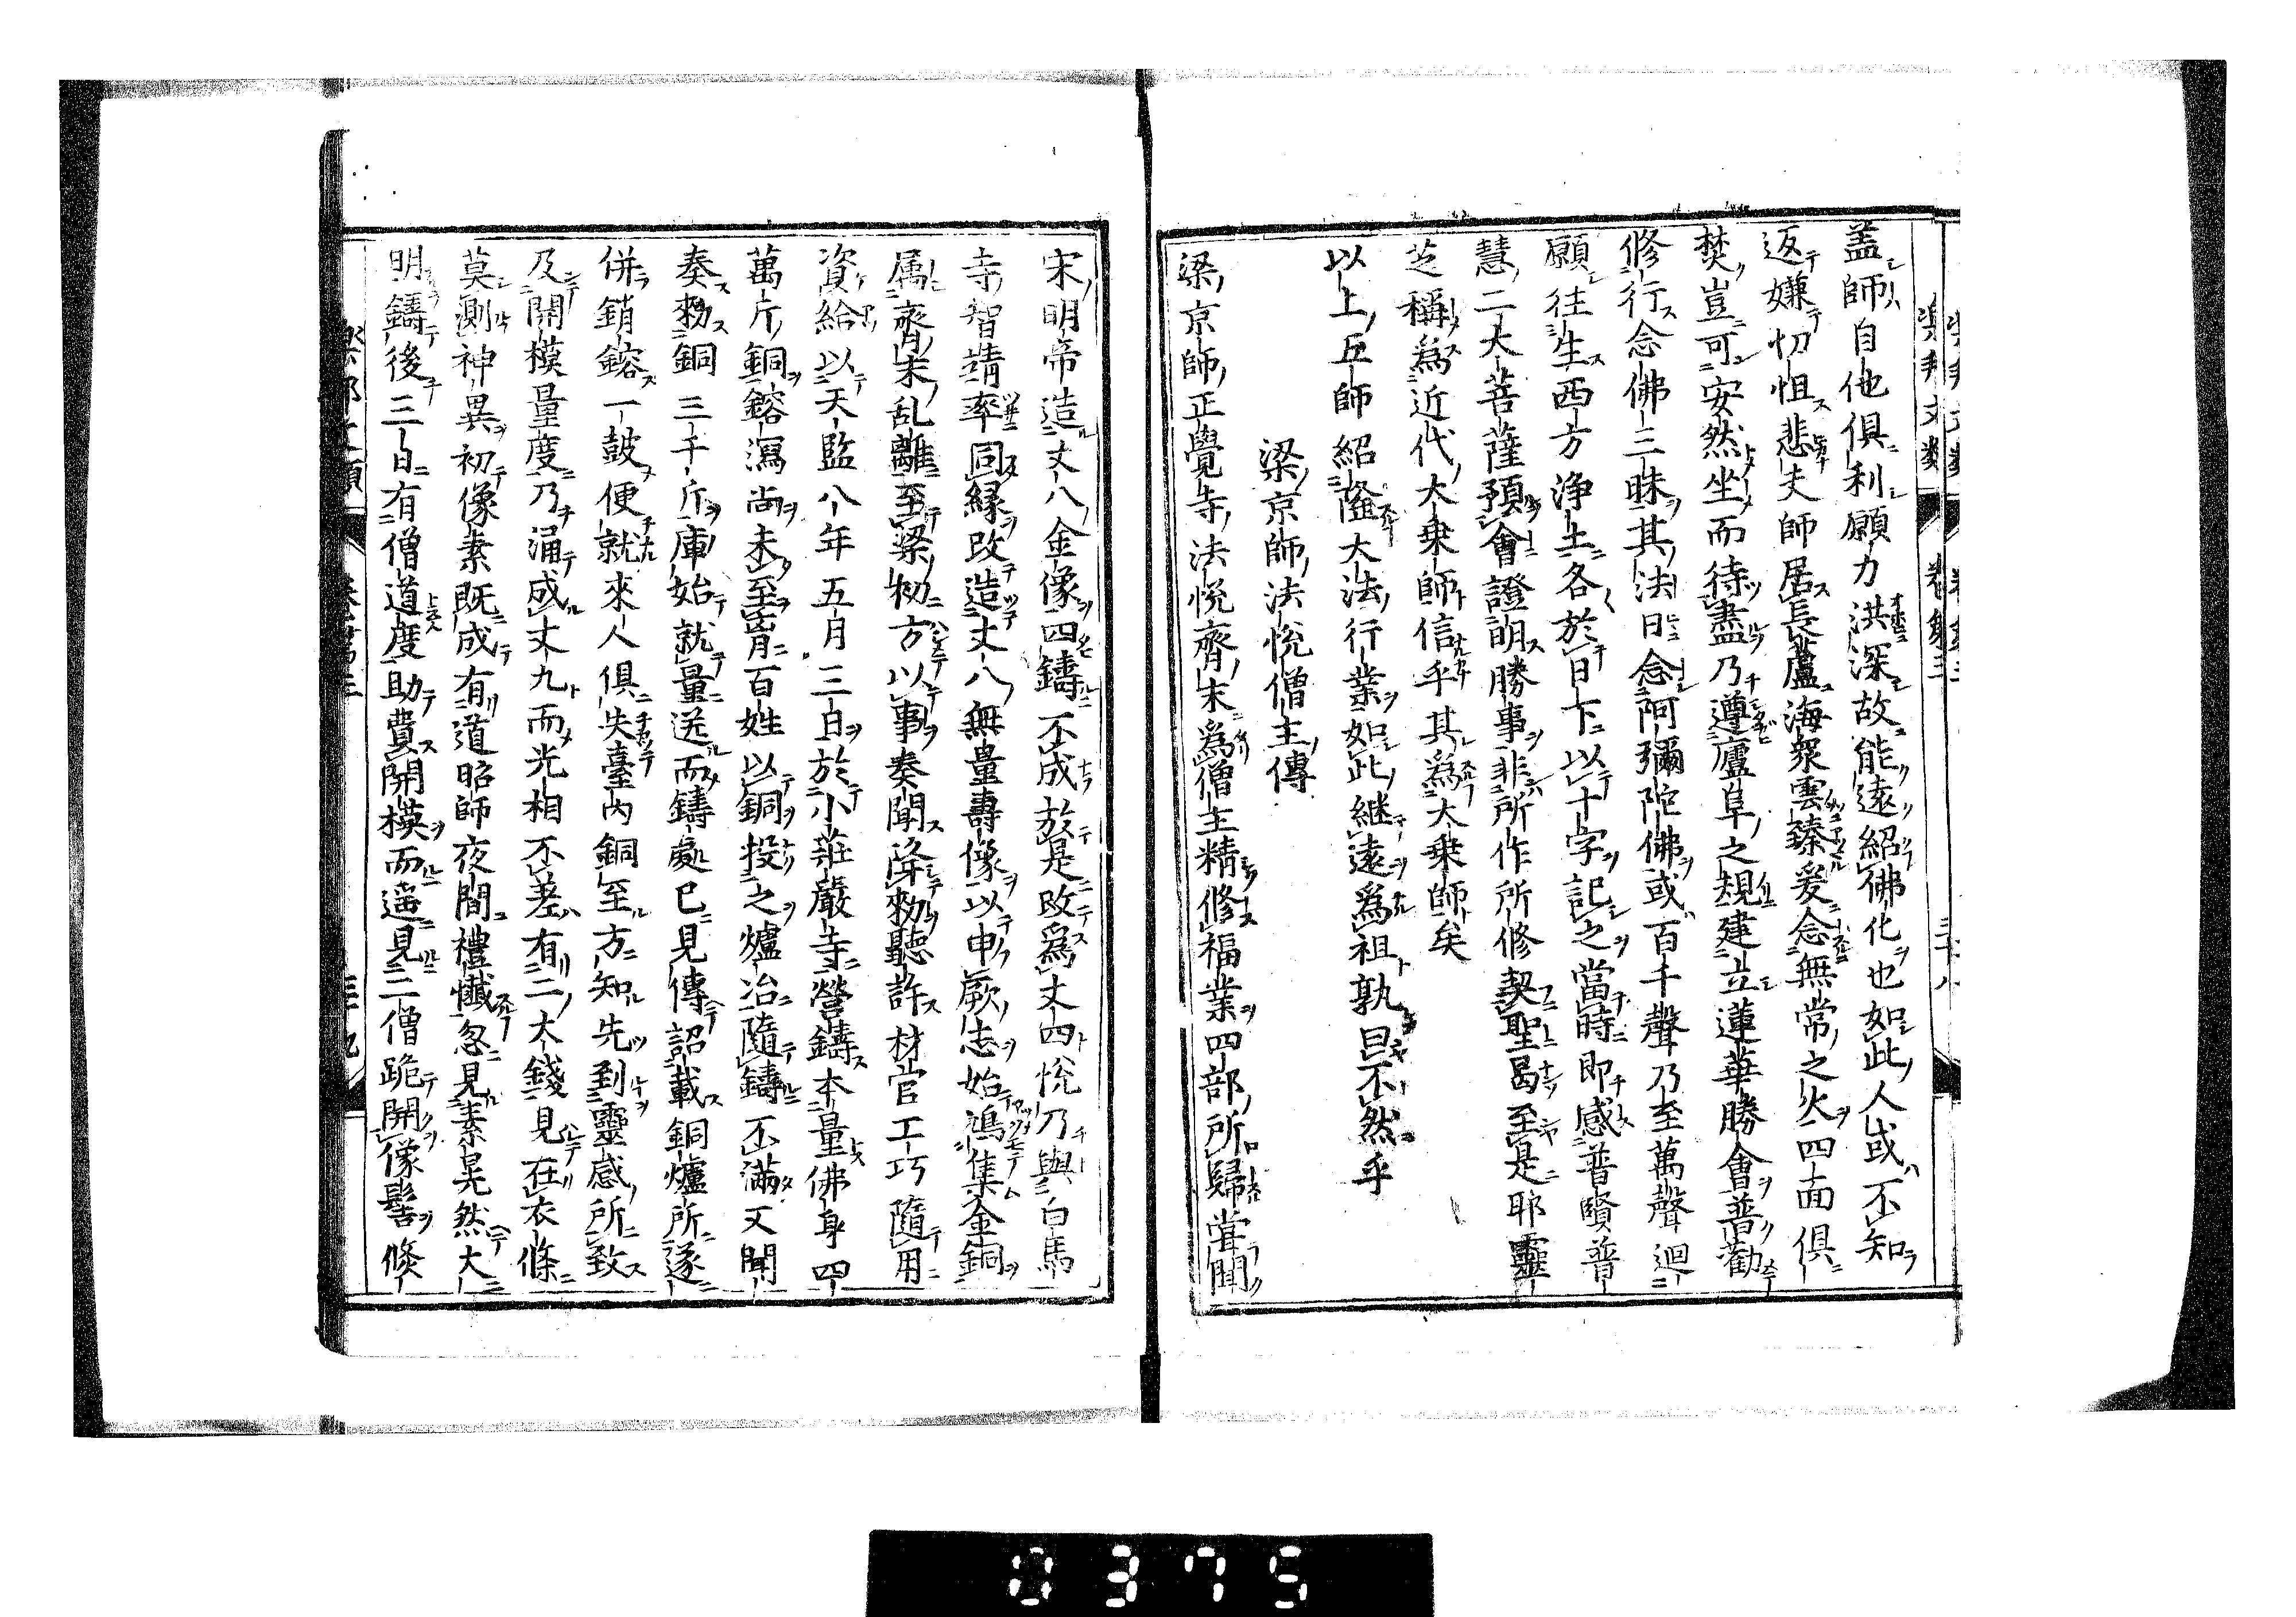 蓋師自他俱利願力洪深故能遠紹佛化也如此人或不知
返嫌切怛悲夫師居長蘆海衆雲臻爰念無常之火四面俱
焚豈可安然坐而待盡乃遵廬阜之規建立蓮華勝會普勸
修行念佛三昧其法日念阿彌陀佛或百千聲乃至萬聲迴
願往生西方淨土各於日下以十字記之當時即感普賢普
慧二大菩薩預會證明勝事非所作所修契聖曷至是耶靈
芝稱爲近代大乗師信乎其爲大乗師矣
以上五師紹隆大法行業如此継遠爲祖孰曰不然乎
梁京師法悅僧主傳
梁京師正覺寺法悅齊末爲僧主精修福業四部所歸甞聞
宋明帝造丈八金像四鑄不成於是改爲丈四悅乃與白馬
寺智靖率同縁改造丈八無量壽像以申厥志始鳩集金銅
属齊末乱離至梁初方以事奏聞降勑聽許材官工巧隨用
資給以天監八年五月三日於小莊嚴寺營鑄本量佛身四
萬斤銅鎔瀉尚未至胷百姓以銅投之爐冶隨鑄不滿又聞
奏勑銅三千斤庫始就量送而鑄處已見傳詔載銅爐所遂
併銷鎔一皷便就來人俱失臺內銅至方知先到靈感所致
及開模量度乃涌成丈九而光相不差有二大錢見在衣條
莫測神異初像素既成有道昭師夜間禮懺忽見素晃然大
明鑄後三日有僧道度助費開模而遥見二僧跪開像髻倐
樂邦文類 卷第三 三十八
樂邦文類 卷第三 三十九
0375